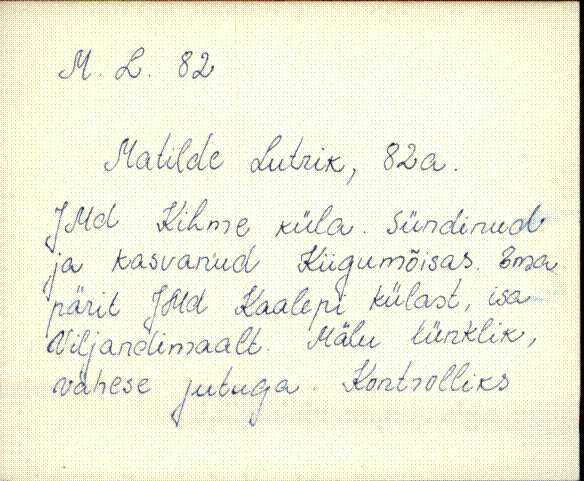 M. L. 82
Matilde Lutrik, 82a.
JMd Kihme küla. Sündinud
ja kasvanud Kiigumõisas. Ema
pärit JMd Kaalepi külast, isa
Viljandimaalt. Mälu lünklik,
vähese jutuga. Kontrolliks